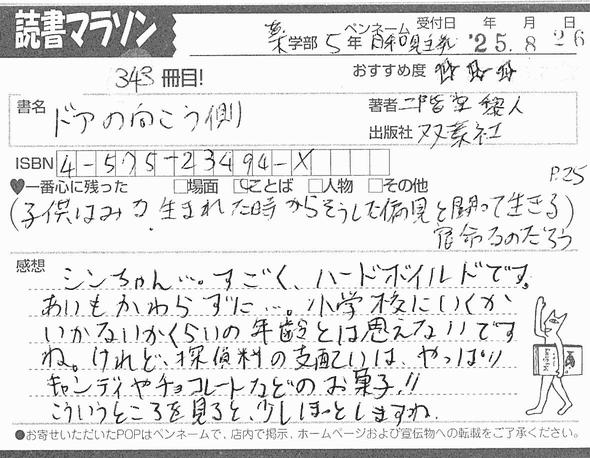 読書マラソン
薬学部 5年 ペンネーム 受付日 '25年 8月 26日
343冊目!
おすすめ度 ☆☆☆
書名 ドアの向こう側
著者 二階堂黎人
出版社 双葉社
ISBN 4-575-23494-X
♥一番心に残った □場面 □ことば □人物 □その他 P.25
(子供はみな、生まれた時からそうした偏見と闘って生きる)
宿命なのだろう
感想
シンちゃん…。すごく、ハードボイルドです。
あいもかわらずに…。小学校にいくか
いかないかくらいの年齢とは思えないです
ね。けれど、探偵料の支払いは、やっぱり
キャンディやチョコレートなどのお菓子!!
こういうところを見ると、少しほっとしますね.
●お寄せいただいたPOPはペンネームで、店内で掲示、ホームページおよび宣伝物への転載をご了承ください。